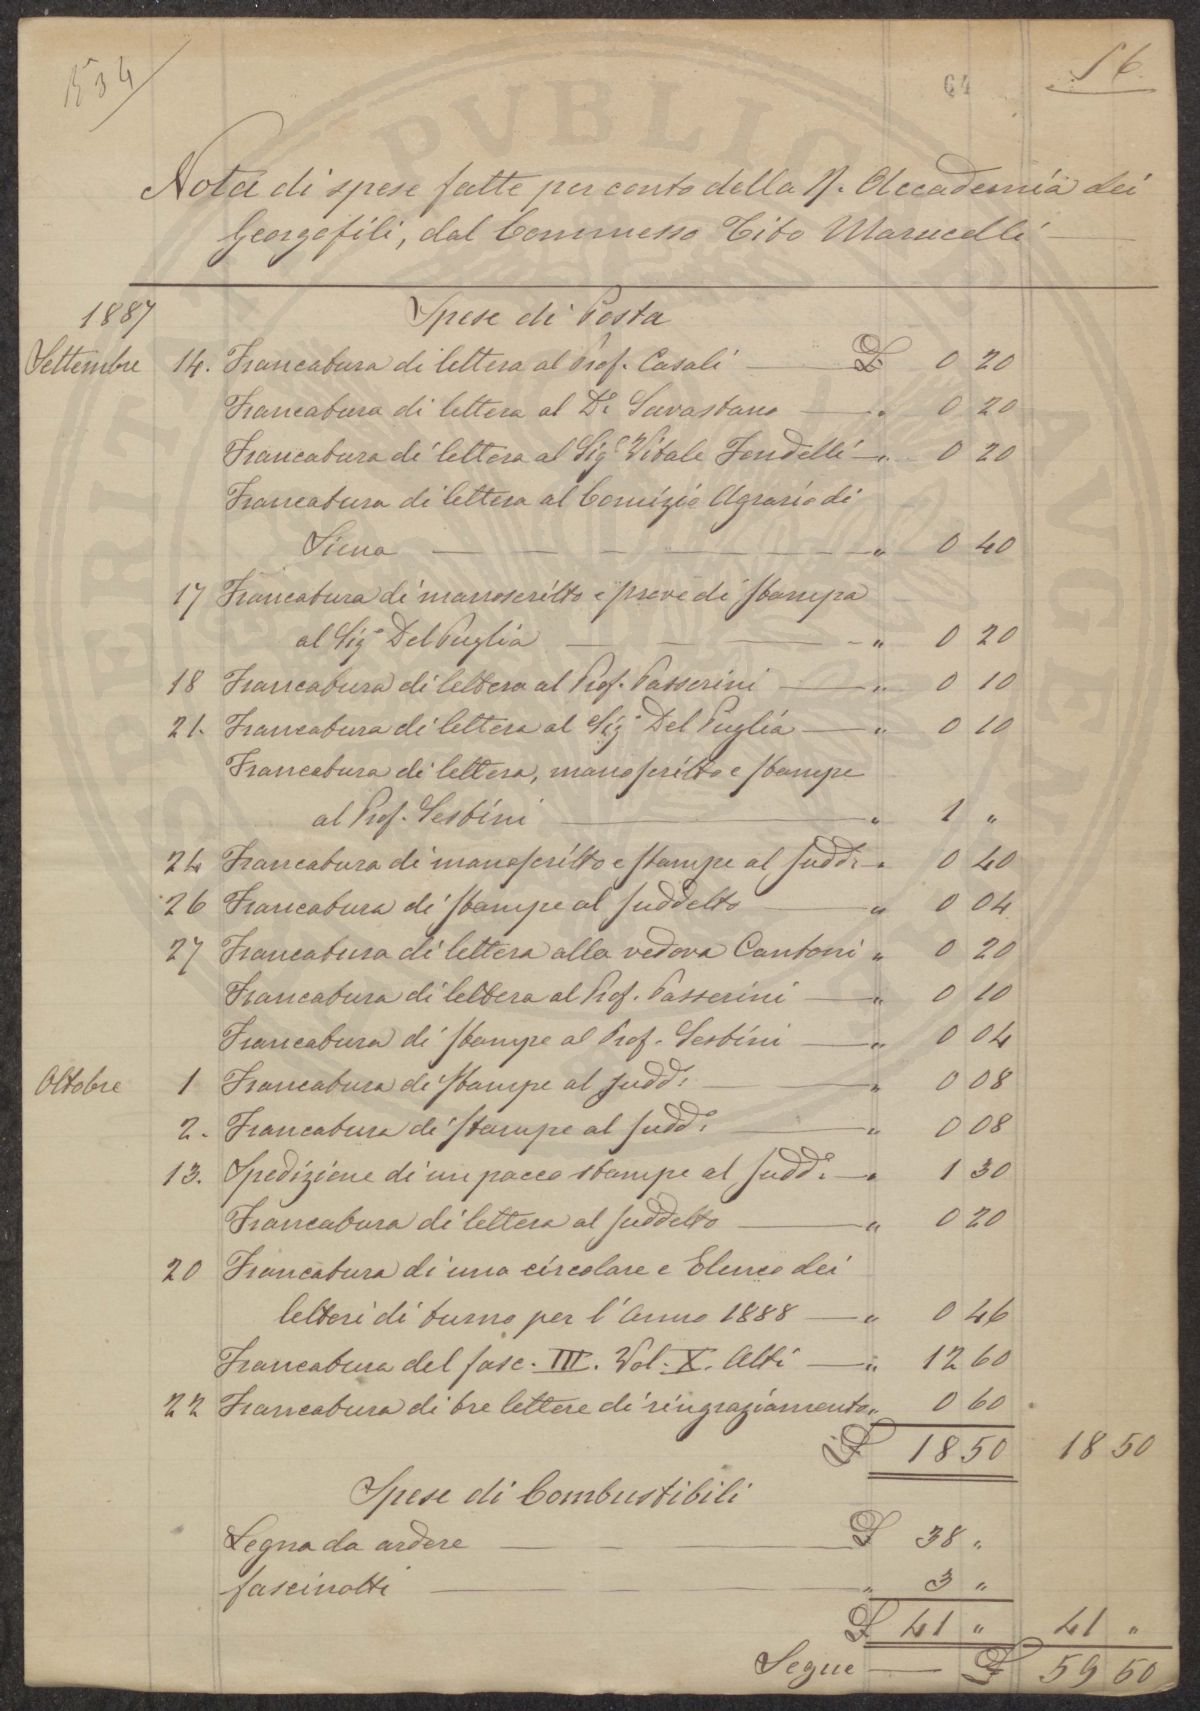 1534
64
56
Nota di spese fatte per conto della R. Accademia dei
Georgofili, dal Commesso Tito Marucelli
1887 Spese di Posta
Settembre 14. Francatura di lettera al Prof. Casali £ 0 20
Francatura di lettera al Dr Savastano " 0 20
Francatura di lettera al Sigr Vitale Fendelli " 0 20
Francatura di lettera al Comizio Agrario di
Siena " 0 40
17 Francatura di manoscritto e prove di stampa
al Sigr Del Puglia " 0 20
18 Francatura di lettera al Prof. Passerini " 0 10
21. Francatura di lettera al Sigr Del Puglia " 0 10
Francatura di lettera, manoscritto e stampe
al Prof. Sestini " 1 "
24 Francatura di manoscritto e stampe al sudd: " 0 40
26 Francatura di stampe al suddetto " 0 04
27 Francatura di lettera alla vedova Cantoni " 0 20
Francatura di lettera al Prof. Passerini " 0 10
Francatura di stampe al Prof. Sestini " 0 04
Ottobre 1 Francatura di stampe al sudd: " 0 08
2. Francatura di stampe al sudd: " 0 08
13. Spedizione di un pacco stampe al sudd: " 1 30
Francatura di lettera al suddetto " 0 20
20 Francatura di una circolare e Elenco dei
lettori di turno per l'Anno 1888 " 0 46
Francatura del fasc. III. Vol. X. Atti " 12 60
22 Francatura di tre lettere di ringraziamento " 0 60
£ 18 50 18 50
Spese di Combustibili
Legna da ardere £ 38 "
fascinotti " 3 "
£ 41 " 41 "
Segue £ 59 50